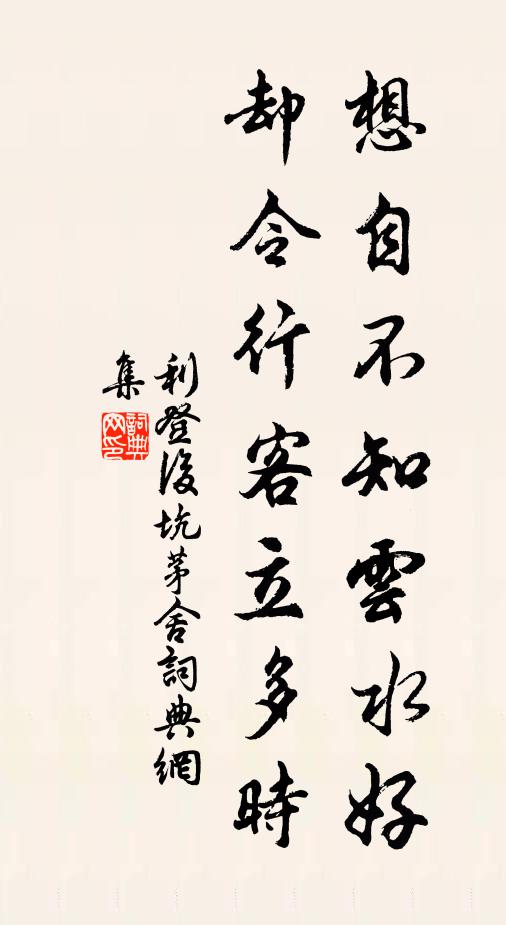 想自不知雲水好
却令行客立多時
利登後坑茅舍詞典網
集
詞典
网印